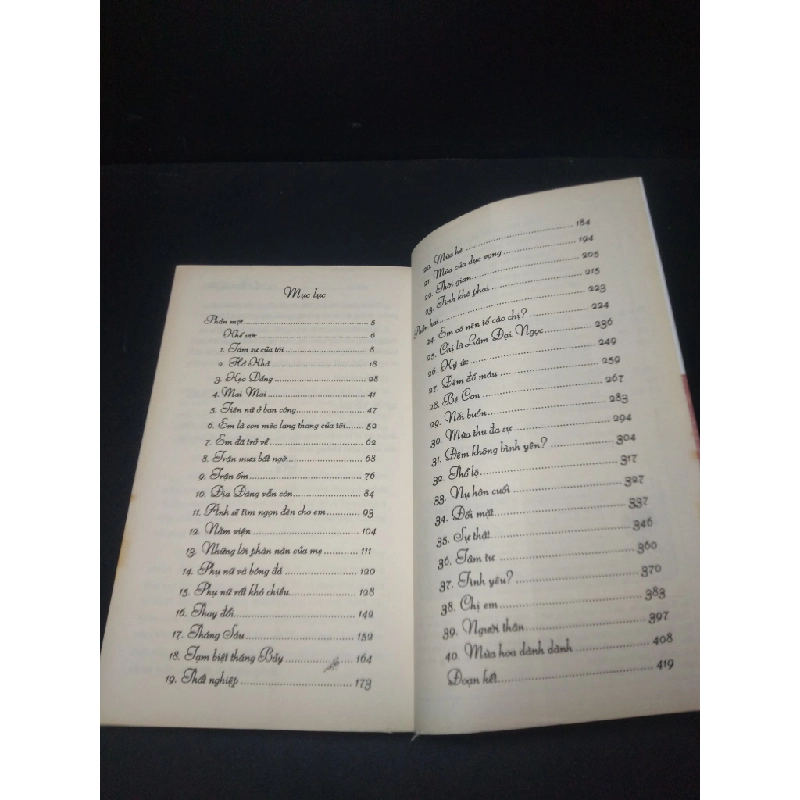 Mục lục
Phần một 5
Khế ước 6
1. Tâm sự của tôi 8
2. Hổ Nhỏ 18
3. Học Đông 28
4. Mai Mai 41
5. Tiên nữ ở ban công 47
6. Em là con mèo lang thang của tôi 52
7. Em đã trở về 62
8. Trận mưa bất ngờ 68
9. Trận ốm 76
10. Địa Đàng vẫn còn 84
11. Anh sẽ tìm ngọn đèn cho em 93
12. Nằm viện 104
13. Những lời phàn nàn của mẹ 111
14. Phụ nữ và bóng đá 120
15. Phụ nữ rất khó chiều 128
16. Thay đổi 142
17. Tháng Sáu 152
18. Tạm biệt tháng Bảy 164
19. Thất nghiệp 173
20. Mùa hè 184
21. Mùa của dục vọng 194
22. Thời gian 205
23. Tình khó phai 215
Phần hai 223
24. Em có nên tố cáo chị? 224
25. Chị là Lâm Đại Ngọc 236
26. Ký ức 249
27. Đêm đổ máu 259
28. Bé Con 267
29. Nỗi buồn 283
30. Mùa thu đa sự 294
31. Đêm không bình yên? 304
32. Thổ lộ 317
33. Nụ hôn cuối 327
34. Đối mặt 337
35. Sự thật 346
36. Tâm tư 360
37. Tình yêu? 370
38. Chị em 383
39. Người thân 397
40. Mùa hoa dành dành 408
Đoạn kết 419